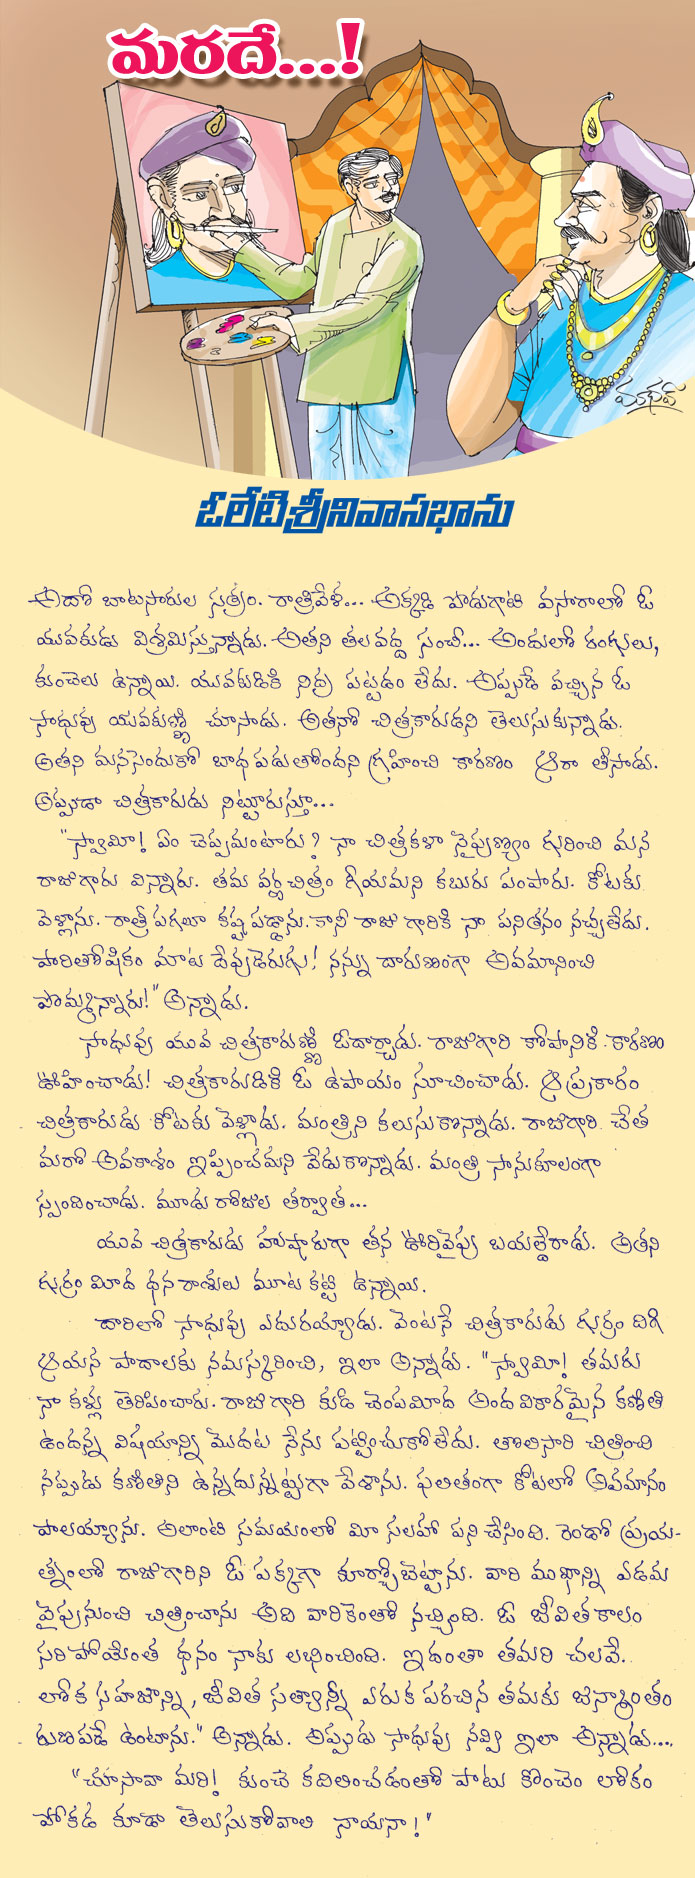 మరదే...!
మాధవ్
ఓలేటి శ్రీనివాసభాను
అదో బాటసారుల సత్రం. రాత్రివేళ... అక్కడి పొడుగాటి వసారాలో ఓ
యువకుడు విశ్రమిస్తున్నాడు. అతని తలవద్ద సంచీ... అందులో రంగులు,
కుంచెలు ఉన్నాయి. యువకుడికి నిద్ర పట్టడం లేదు. అప్పుడే వచ్చిన ఓ
సాధువు యువకుణ్ణి చూసాడు. అతనో చిత్రకారుడని తెలుసుకున్నాడు.
అతని మనసెందుకో బాధపడుతోందని గ్రహించి కారణం ఆరా తీసాడు.
అప్పుడా చిత్రకారుడు నిట్టూరుస్తూ...
"స్వామీ! ఏం చెప్పమంటారు? నా చిత్రకళా నైపుణ్యం గురించి మన
రాజుగారు విన్నారు. తమ వర్ణచిత్రం గీయమని కబురు పంపారు. కోటకు
వెళ్లాను. రాత్రీపగలూ కష్టపడ్డాను. కానీ రాజు గారికి నా పనితనం నచ్చలేదు.
పారితోషికం మాట దేవుడెరుగు! నన్ను దారుణంగా అవమానించి
పొమ్మన్నారు!" అన్నాడు.
సాధువు యువ చిత్రకారుణ్ణి ఓదార్చాడు. రాజుగారి కోపానికి కారణం
ఊహించాడు! చిత్రకారుడికి ఓ ఉపాయం సూచించాడు. ఆ ప్రకారం
చిత్రకారుడు కోటకు వెళ్లాడు. మంత్రిని కలుసుకొన్నాడు. రాజుగారి చేత
మరో అవకాశం ఇప్పించమని వేడుకొన్నాడు. మంత్రి సానుకూలంగా
స్పందించాడు. మూడు రోజుల తర్వాత...
యువ చిత్రకారుడు హుషారుగా తన ఊరివైపు బయల్దేరాడు. అతని
గుర్రం మీద ధనరాశులు మూట కట్టి ఉన్నాయి.
దారిలో సాధువు ఎదురయ్యాడు. వెంటనే చిత్రకారుడు గుర్రం దిగి
ఆయన పాదాలకు నమస్కరించి, ఇలా అన్నాడు. "స్వామీ! తమరు
నా కళ్లు తెరిపించారు. రాజుగారి కుడి చెంపమీద అందవికారమైన కణితి
ఉందన్న విషయాన్ని మొదట నేను పట్టించుకోలేదు. తొలిసారి చిత్రించి
నప్పుడు కణితిని ఉన్నదున్నట్టుగా వేశాను. ఫలితంగా కోటలో అవమానం
పాలయ్యాను. అలాంటి సమయంలో మీ సలహా పని చేసింది. రెండో ప్రయ-
త్నంలో రాజుగారిని ఓ పక్కగా కూర్చోబెట్టాను. వారి ముఖాన్ని ఎడమ
వైపునుంచి చిత్రించాను అది వారికెంతో నచ్చింది. ఓ జీవితకాలం
సరిపోయేంత ధనం నాకు లభించింది. ఇదంతా తమరి చలవే.
లోక సహజాన్ని, జీవిత సత్యాన్నీ ఎరుక పరచిన తమకు జన్మాంతం
ఋణపడే ఉంటాను." అన్నాడు. అప్పుడు సాధువు నవ్వి ఇలా అన్నాడు....
"చూసావా మరి! కుంచె కదిలించడంతో పాటు కొంచెం లోకం
పోకడ కూడా తెలుసుకోవాలి నాయనా!"